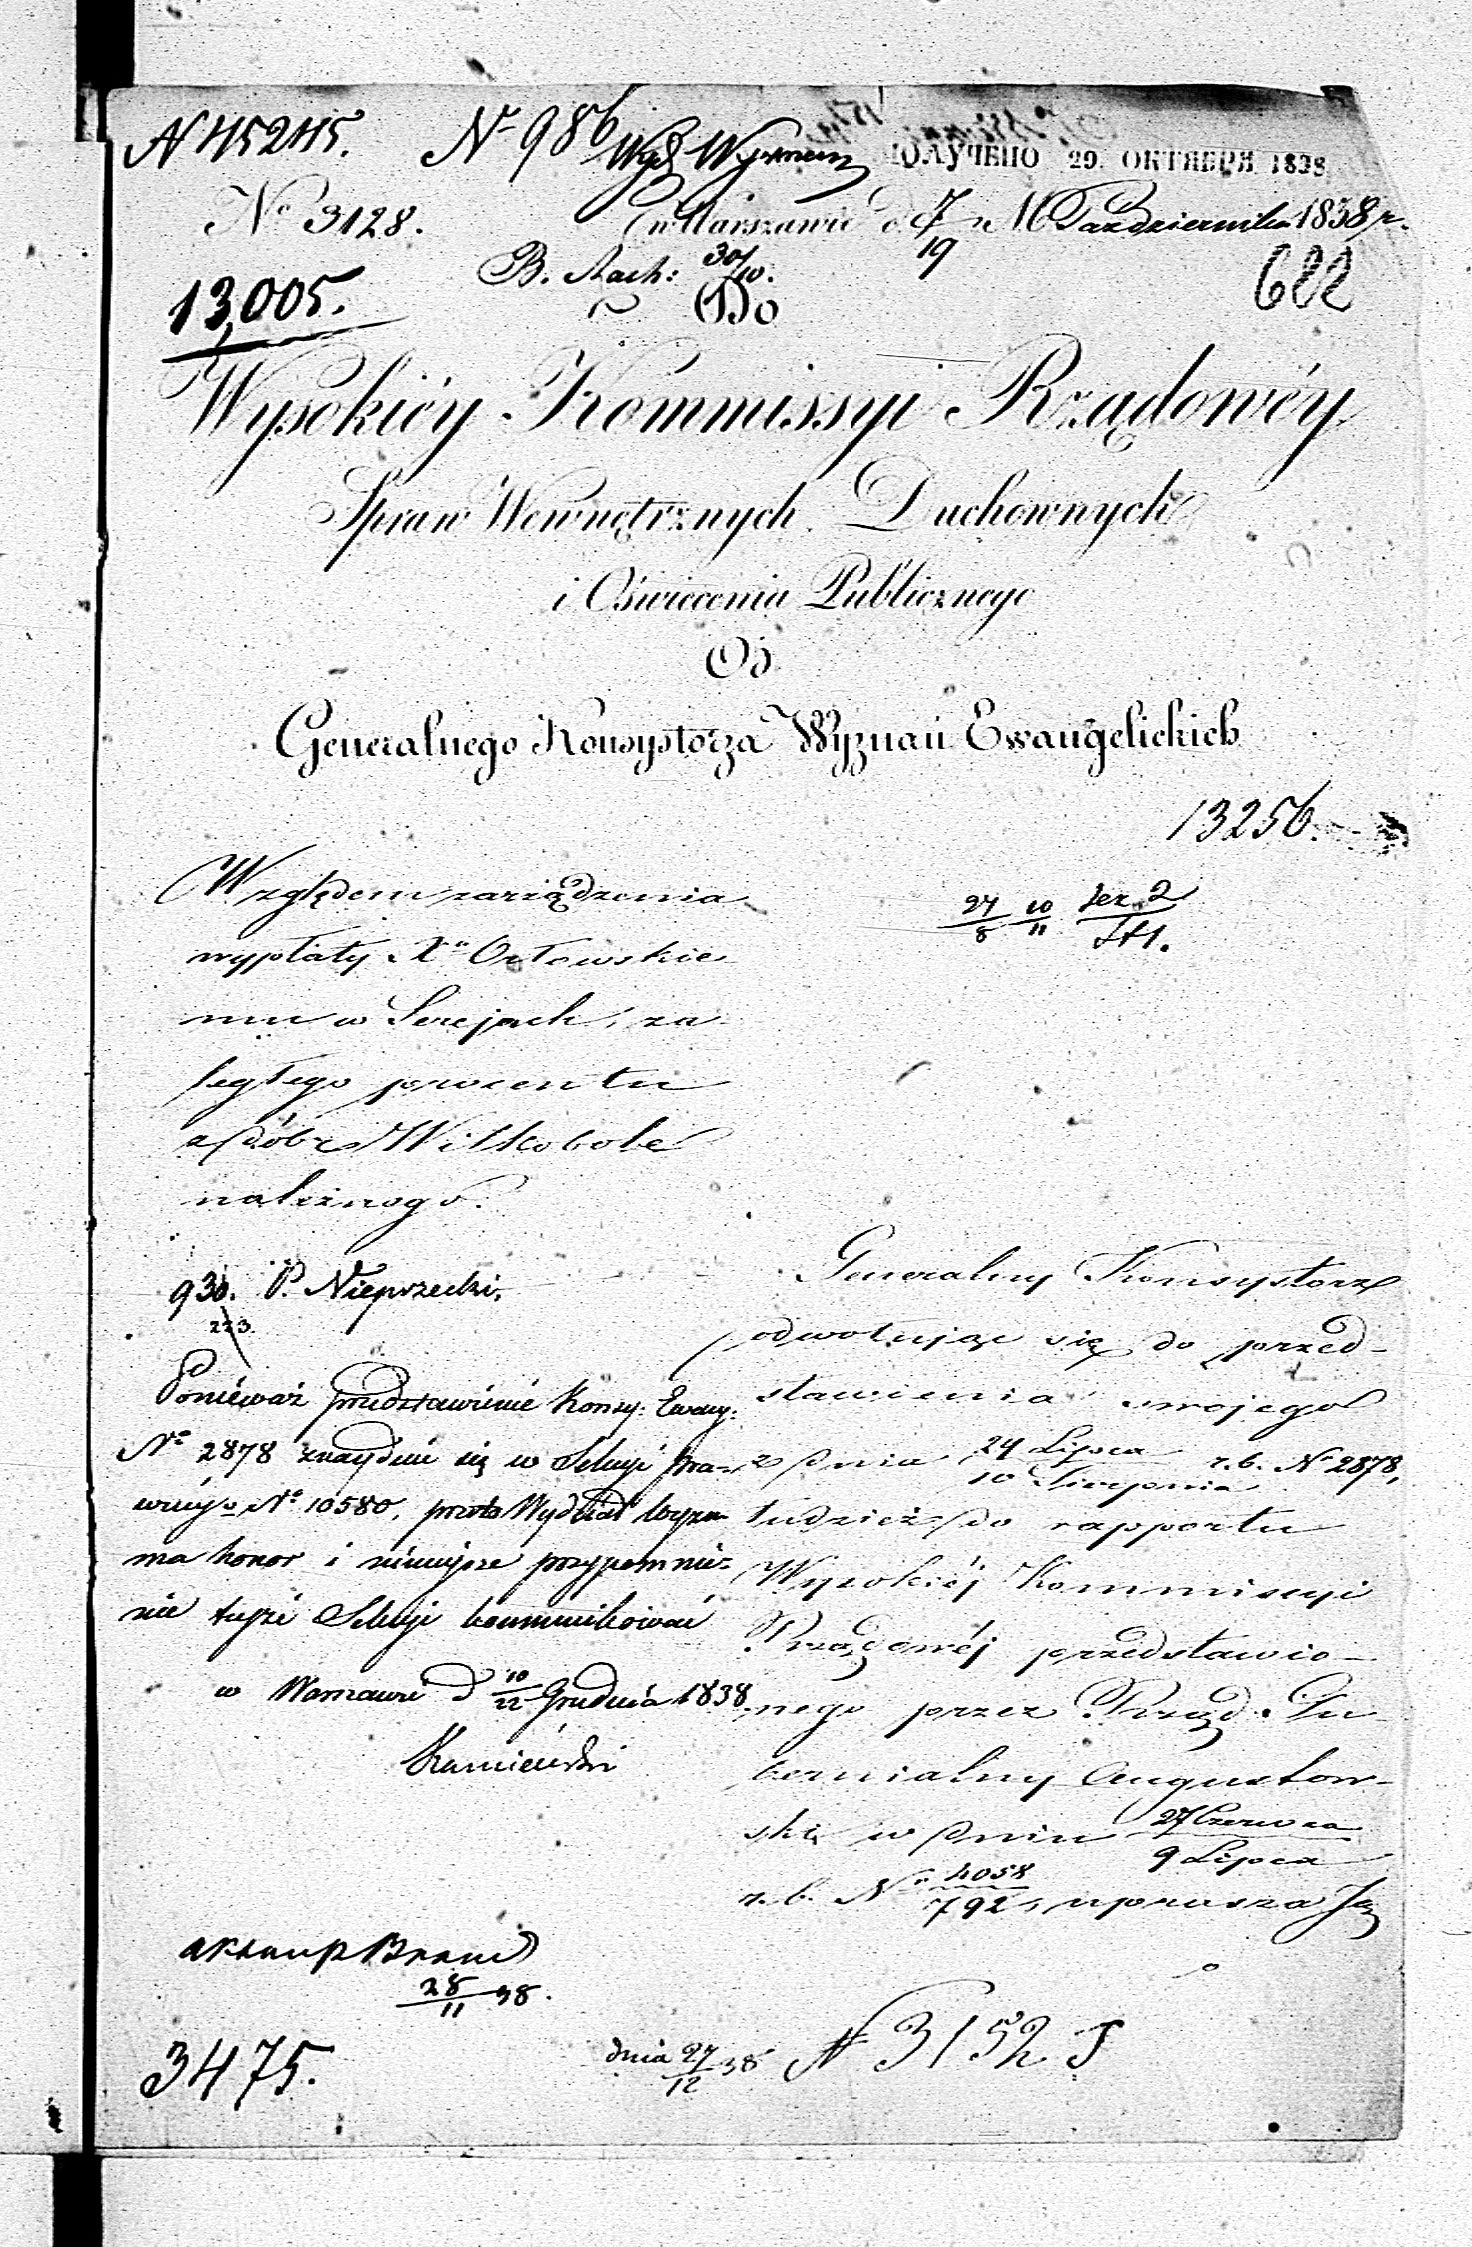 N 45245. Nº 986 Wyd. Wyznań ПОЛУЧЕНО 29. ОКТЯБРЯ 1838
Nº 3128. w Warszawie d. 7/19 M Października 1838 r.
B. Rach: 30/10. 682
13,005. Do
Wysokiéy Kommissyi Rządowéy
Spraw Wewnętrznych Duchownych
i Oświecenia Publicznego
Od
Generalnego Konsystorza Wyznań Ewangelickich
13256.
Względem zarządzenia
wypłaty Xu Orłowskie
mu w Serejach, za
ległego procentu
z dóbr Wiłkobole
należnego.
27/8 10/11
930. P. Nieprzecki.
223.
Poniéważ przedstawienie Konsy: Ewang:
Nº 2878 znayduie się w Sekcyi Pra-
wnéy Nº 10580, przeto Wydział Wyzn
ma honor i ninieysze przypomnie-
nie teyże Sekcyi kommunikować
w Warszawie d 10/22 Grudnia 1838
Kamieński
Generalny Konsystorz
odwołując się do przed-
stawienia swojego
z dnia 24 Lipca/10 Sierpnia r. b. Nº 2878,
tudzież do rapportu
Wysokiéj Kommissyi
Rządowéj przedstawio-
nego przez Rząd Gu
bernialny Augustow-
ski w dniu 27 Czerwca/9 Lipca
r. b. Nº 4058/792, uprasza Ją
28/11 38.
3475. dnia 27/12 38 N 3152